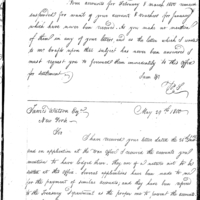 Your accounts for February & March 1800 remain
suspended for want of your account & vouchers for January
which have never been received. As you make no mention
of them in any of your letters and as the letter which I wrote
to you upon this subject has never been answered I
must request you to forward them immediately to this Office
for settlement.
I am &c
Saml Watson Esqr
May 28th 1800
New York
Sir
I have received your letter dated the
on application at the War Office I received the accounts you
mention to have lodged there, they are of a nature not to be
settled at this Office. Several applications have been made to me
for the payment of similar accounts, and they have been referred
to the Treasury department as the proper one to direct the accounts